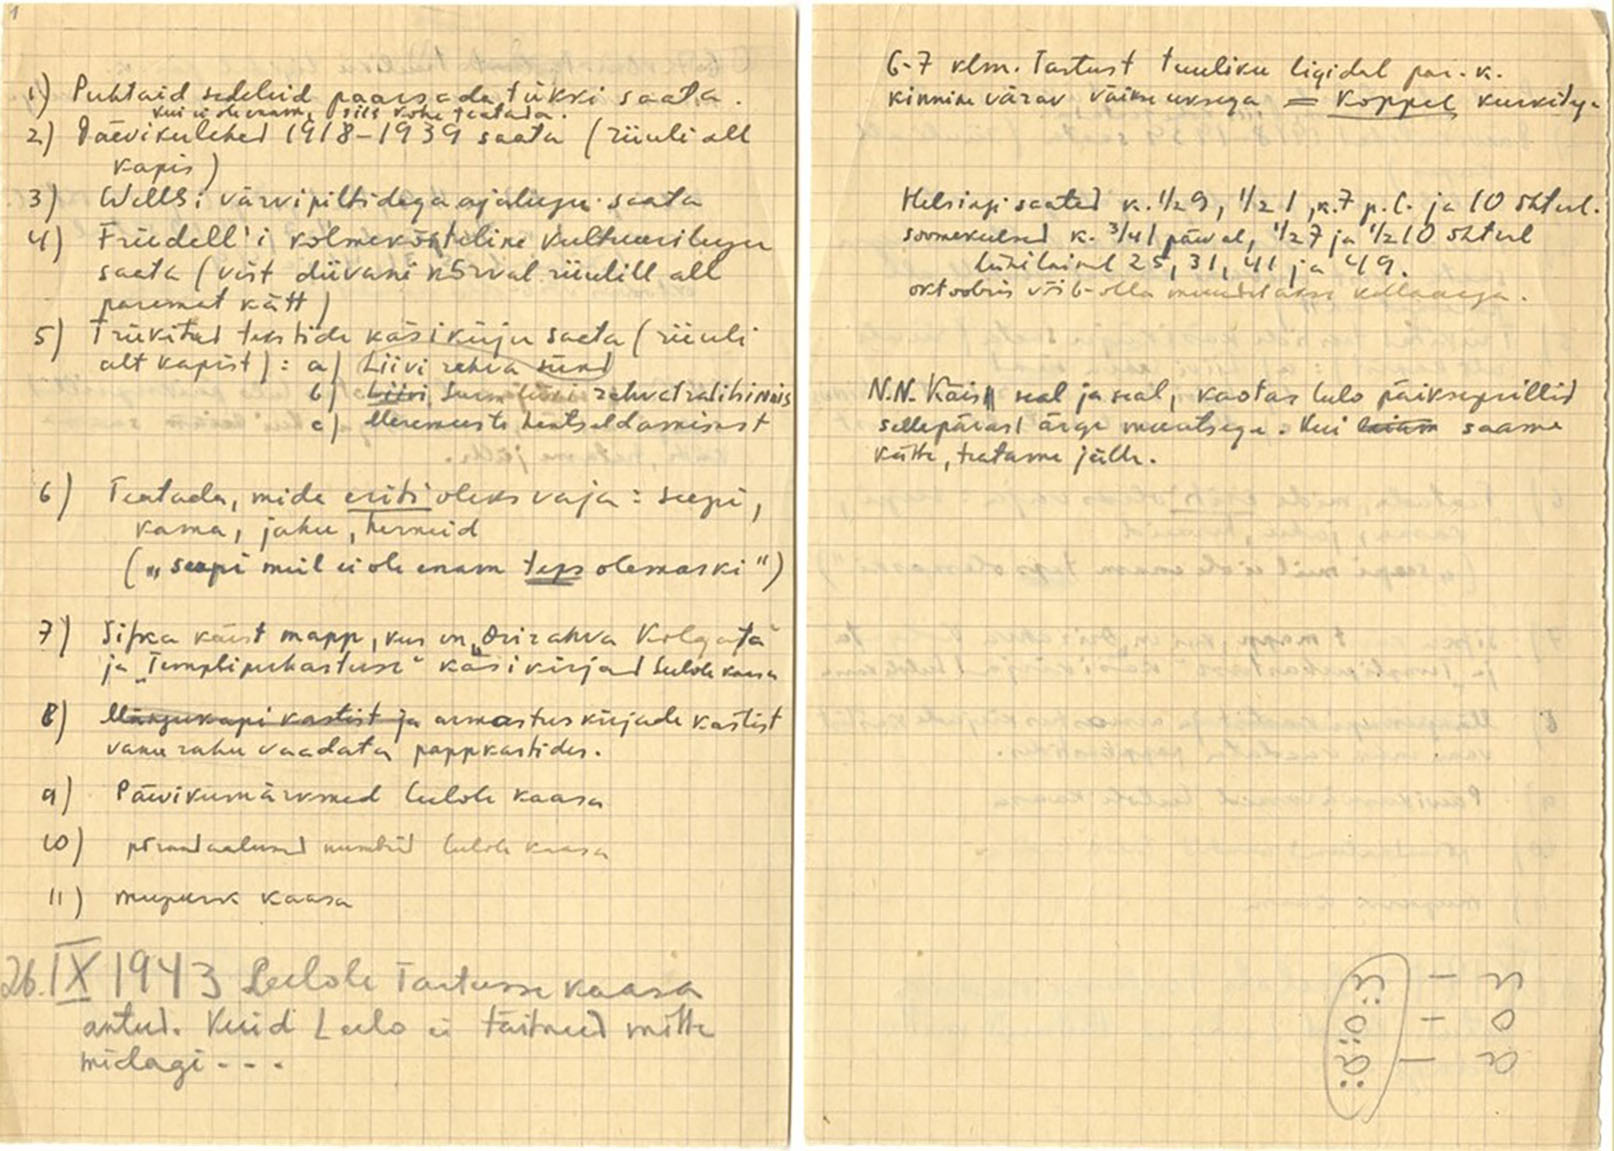 1
1) Puhtaid sedeleid paarsada tükki saata.
kui ei ole enam, siis kohe teatada.
2) Päevikulehed 1918–1939 saata (riiuli all
kapis)
3) Wells'i värvipiltidega ajalugu saata
4) Friedell'i kolmeköiteline kultuurilugu
saata (vist diivani kõrval riiulill all
paremat kätt)
5) Trükitud tekstide käsikirju saata (riiuli
alt kapist): a) Liivi rahva sünd
b) Liivi rahvatralihinnis
c) Meremeeste
6) Teatada, mida eriti oleks vaja: seepi,
kama, jahu, herneid
(„seepi meil ei ole enam teps olemaski")
7) Sipka käest mapp, kus on „Orirahva Kolgata"
ja „Templipuhastuse" käsikirjad Leelole kaasa
8) Mängukapi kastist ja armastuskirjade kastist
vanu rahu vaadata pappkastides.
9) Päevikumärkmed Leelole kaasa
10) põrandaalused numbrid Leelole kaasa
11) kaasa
26. IX 1943 Leelole Tartusse kaasa
antud. Kuid Leelo ei täitnud mitte
midagi - - -
6-7 klm. Tartust tuuliku ligidal par. k.
kinnine värav väikse uksega = Koppel
Helsingi saated k. ½9, ½1, k. 7 p.l. ja 10 õhtul.
soomekeelsed k. ¾1 päeval, ½7 ja ½10 õhtul
lühilainel 25, 31, 41 ja 49.
oktoobris võib-olla muudetakse kellaaega.
N.N. Käis seal ja seal, kaotas Lulo päikseprillid
sellepärast ärge muretsege. Kui saame
kätte, teatame jälle.